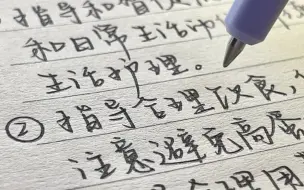 指导和
和日常生活
生活护理。
②指导合理饮食,
注意避免高
理